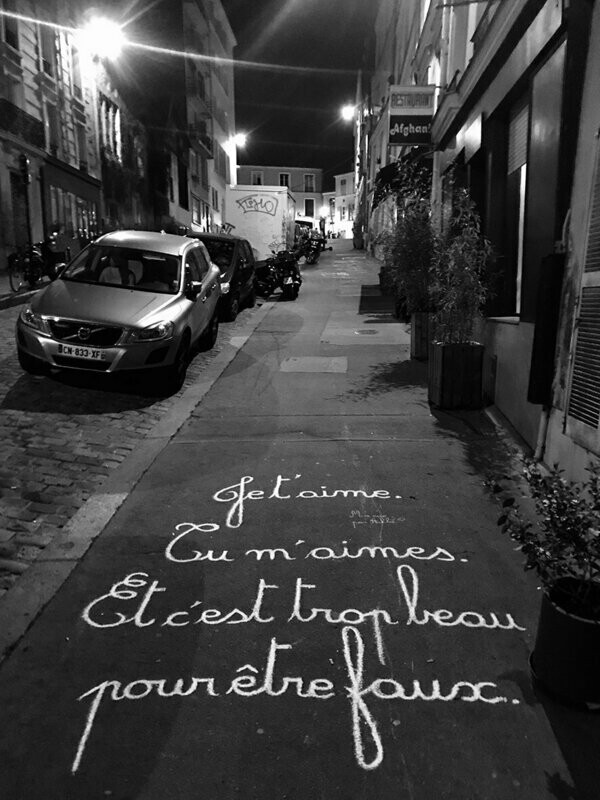 RESTAURANT
Afghani
CN-833-XF
Je t'aime.
Tu m'aimes.
Et c'est trop beau
pour être faux.